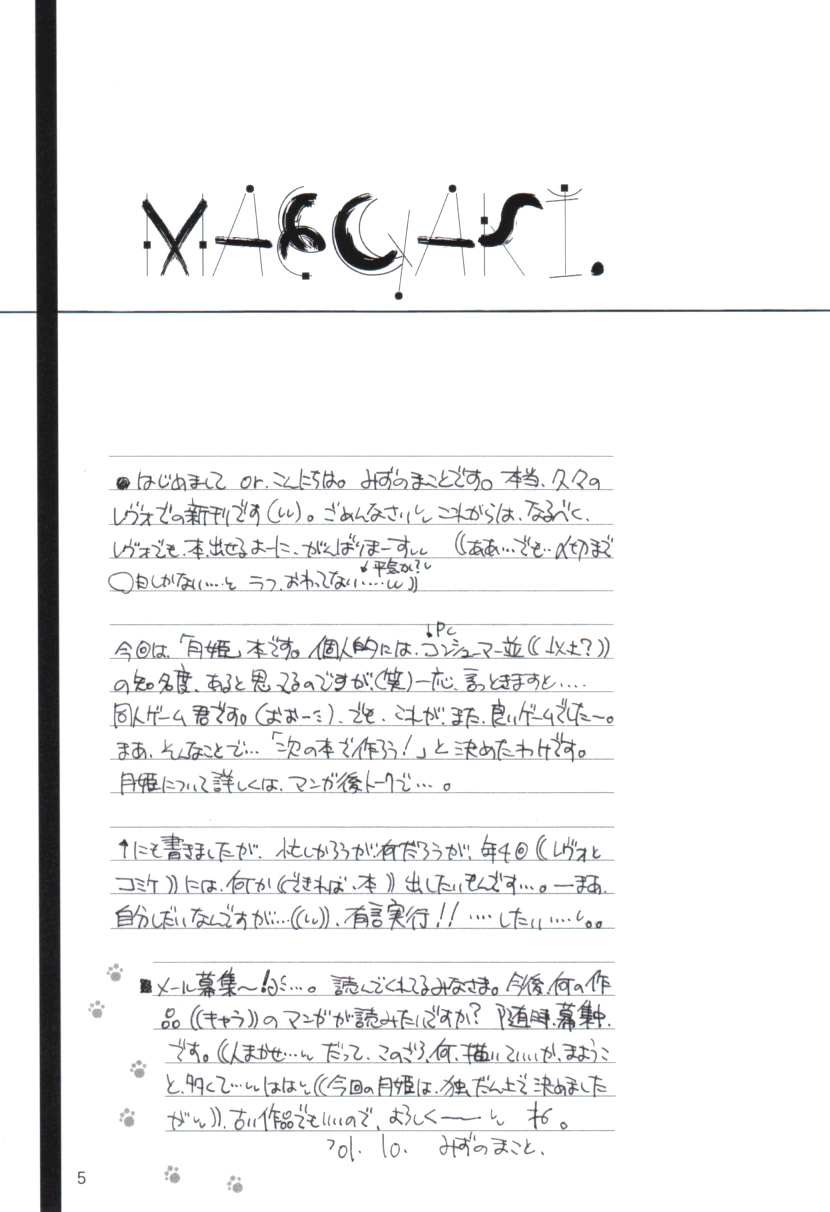 MAEGAKI.
●はじめまして or.こんにちは。みずのまことです。本当、久々の
レヴォでの新刊です(しし)。ごめんなさいしし これからは、なるべく、
レヴォでも、本、出せるよーに、がんばりまーすしし ((ああ…でも…〆切まで
↙平気か?し
○日しかない…と ラフ、おわってない……しし))
↓PC
今回は、「月姫」本です。個人的には、コンシューマー並((以上?))
の知名度、あると思ってるのですが、(笑)一応、言っときますと……
同人ゲーム君です。(おおーミ)、でも、これが、また、良いゲームでした〜。
まあ、そんなことで…「次の本で作ろう!」と決めたわけです。
月姫について詳しくは、マンガ後トークで…。
↑にも書きましたが、忙しかろうが、何だろうが、年4回((レヴォと
コミケ))には、何か((できれば、本))出したいもんです…。ーまあ、
自分しだいなんですが…((しし))、有言実行!!……したい……し。。
■メール募集〜!…。読んでくれてるみなさま。今後、何の作
品((キャラ))のマンガが読みたいですか?随時、募集中、
です。((人まかせ…しし だって、このごろ、何、描いていいか、まようこ
と、多くて…しし ははし((今回の月姫は、独だん上で決めました
がしし))、古い作品でもいいので、よろしくーー しし 。
'01. 10. みずのまこと、
5